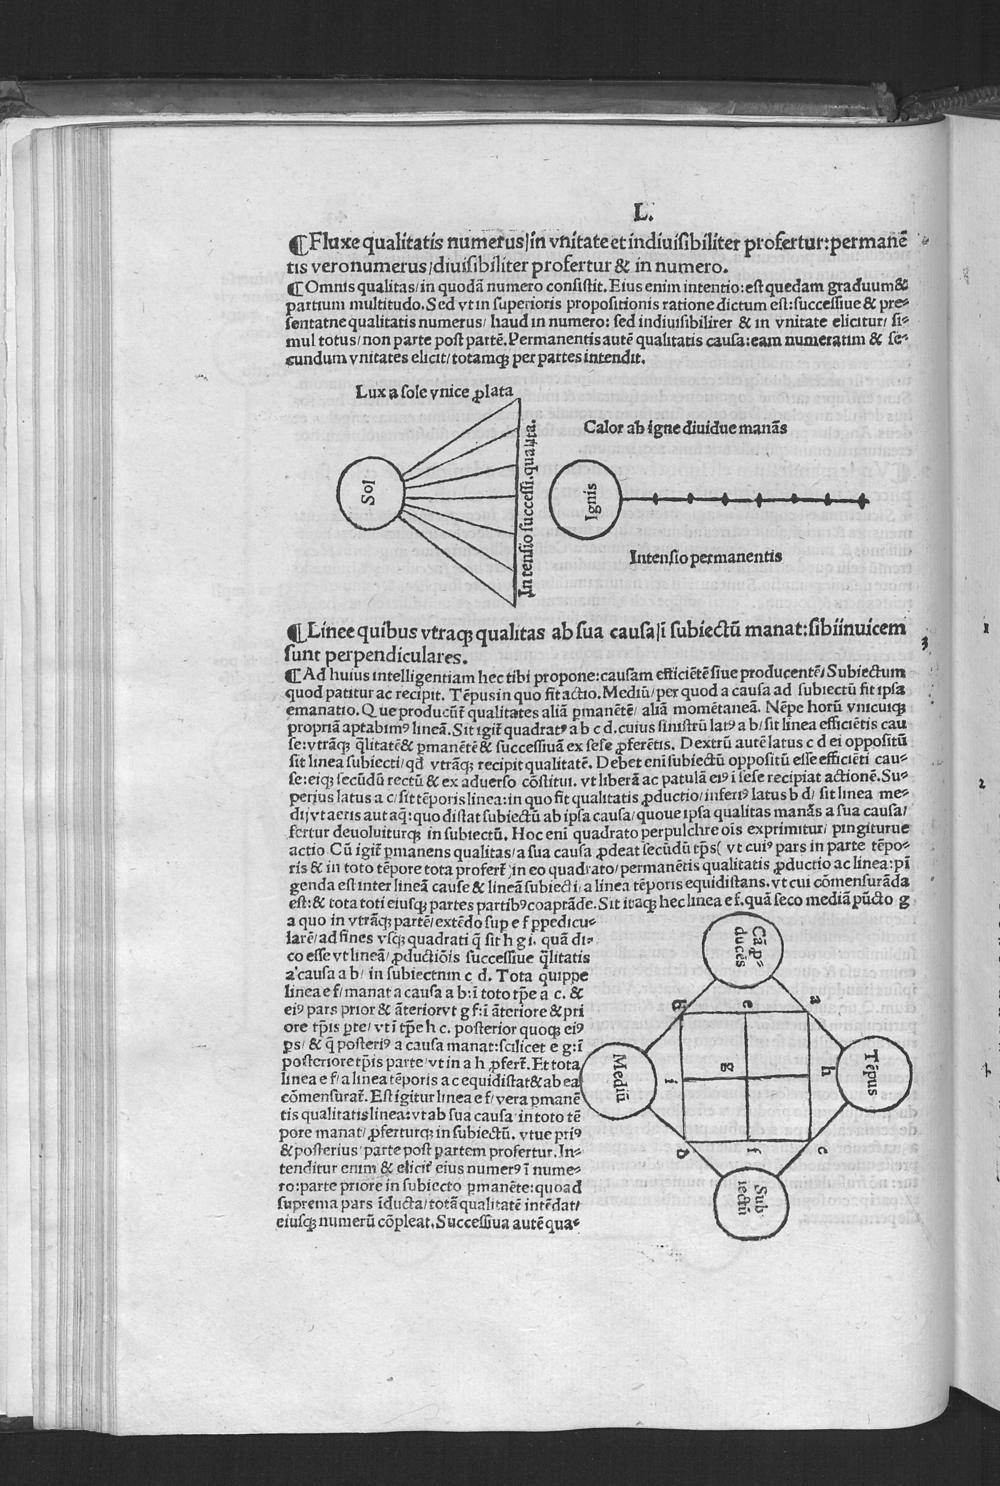 L.
¶Fluxe qualitatis numerus/in vnitate et indiuisibiliter profertur:permanē
tis vero numerus/diuisibiliter profertur & in numero.
¶Omnis qualitas/in quodā numero consistit. Eius enim intentio:est quedam graduum&
partium multitudo. Sed vt in superioris propositionis ratione dictum est:successiue & pre⸗
sentatne qualitatis numerus/ haud in numero: sed indiuisibilirer & in vnitate elicitur/ si⸗
mul totus/non parte post partē. Permanentis autē qualitatis causa:eam numeratim & se⸗
cundum vnitates elicit/totamqꝫ per partes intendit.
Lux a sole vnice ꝓlata
Sol
Intensio successi.qualita.
Calor ab igne diuidue manās
Ignis
Intensio permanentis
¶Linee quibus vtraqꝫ qualitas ab sua causa/ī subiectū manat:sibiinuicem
sunt perpendiculares.
3
¶Ad huius intelligentiam hec tibi propone:causam efficiētē siue producentē/Subiectum
quod patitur ac recipit. Tēpus in quo fit actio. Mediū/per quod a causa ad subiectū fit ipsa
emanatio. Que producūt̄ qualitates aliā ꝑmanētē/ aliā momētaneā. Nēpe horū vnicuiqꝫ
propriā aptabimꝰ lineā. Sit igit̄ quadratꝰ a b c d.cuius sinistrū latꝰ a b/sit linea efficiētis cau
se:vtrāqꝫ q̄litatē& ꝑmanētē& successiuā ex sese ꝓferētis. Dextrū autē latus c d ei oppositū
sit linea subiecti/qd̄ vtrāqꝫ recipit qualitatē. Debet enī subiectū oppositū esse efficiēti cau⸗
se:eiqꝫ secūdū rectū & ex aduerso cōstitui. vt liberā ac patulā eiꝰ ī sese recipiat actionē. Su⸗
perius latus a c/sit tēporis linea:in quo fit qualitatis ꝓductio/inferiꝰ latus b d/ sit linea me⸗
dij vt aeris aut aq̄:quo distat subiectū ab ipsa causa/quoue ipsa qualitas manās a sua causa/
fertur deuoluiturqꝫ in subiectū. Hoc enī quadrato perpulchre oīs exprimitur/ pingiturue
actio Cū igit̄ ꝑmanens qualitas/a sua causa ꝓdeat secūdū tp̄s( vt cuiꝰ pars in parte tēpo⸗
ris & in toto tēpore tota profert̄ )in eo quadrato/permanētis qualitatis ꝓductio ac linea:pī
genda est inter lineā cause & lineā subiecti a linea tēporis equidistans.vt cui cōmensurāda
est:& tota toti eiusqꝫ partes partibꝰ coaptāde. Sit itaqꝫ hec linea e f.quā seco mediā pūcto g
a quo in vtrāqꝫ partē/extēdo sup e f ppedicu⸗
larē/ad fines vsqꝫ quadrati q̄ sit h g i. quā di⸗
co esse vt lineā/ ꝓductiōis successiue q̄litatis
a causa a b/ in subiectnm c d. Tota quippe
linea e f/manat a causa a b:ī toto tp̄e a c. &
eiꝰ pars prior & āterior vt g f:ī āteriore & pri
ore tp̄is pte/ vt ī tp̄e h c. posterior quoqꝫ eiꝰ
ps/ & q̄ posteriꝰ a causa manat:scilicet e g:ī
posteriore tp̄is parte/vt in a h ꝓfert̄. Et tota
linea e f/a linea tēporis a c equidistat& ab ea
cōmensurat̄. Est igitur linea e f/vera ꝑmanē
tis qualitatis linea:vt ab sua causa in toto tē
pore manat/ ꝓferturqꝫ in subiectū. vtue priꝰ
& posterius parte post partem profertur. In⸗
tenditur enim & elicit̄ eius numerꝰ ī nume⸗
ro:parte priore in subiecto ꝑmanēte:quoad
suprema pars īducta/totā qualitatē intēdat/
eiusqꝫ numerū cōpleat. Successiua autē qua⸗
Cā ꝓ⸗
ducēs
b e a
Mediū
i g h
Tēpus
d f c
Sub
iectū
1
2